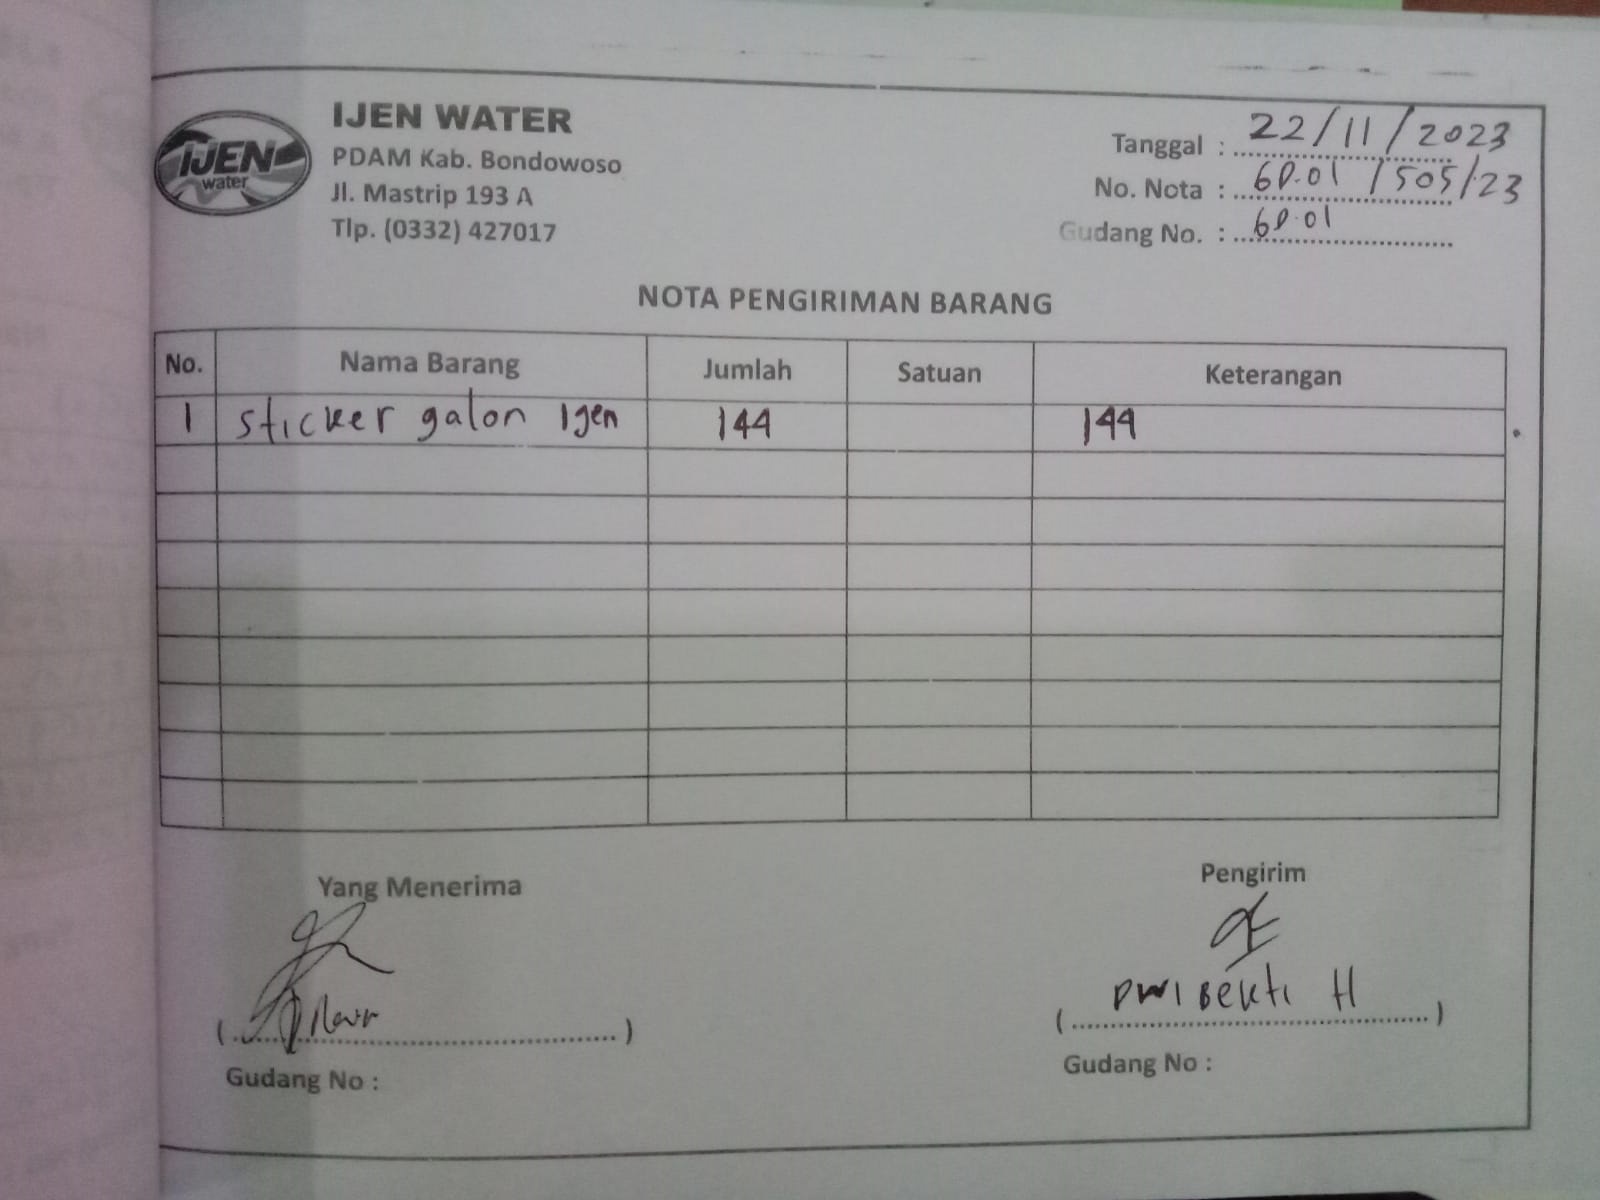 IJEN
water
IJEN WATER
PDAM Kab. Bondowoso
Jl. Mastrip 193 A
Tlp. (0332) 427017
Tanggal : 22/11/2023
No. Nota : 60.01 /505/23
Gudang No. : 60.01
NOTA PENGIRIMAN BARANG
No. Nama Barang Jumlah Satuan Keterangan
1 sticker galon Ijen 144 144
Yang Menerima
Pengirim
( )
( Dwi Bekti H )
Gudang No :
Gudang No :